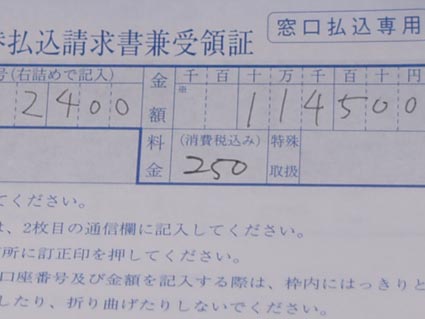 払込請求書兼受領証
窓口払込専用
号(右詰めで記入) 金額 千百十万千百十円
2400 ※ 114500
料金 (消費税込み) 250 特殊取扱
てください。
は、2枚目の通信欄に記入してください。
所に訂正印を押してください。
口座番号及び金額を記入する際は、枠内にはっきりと
したり、折り曲げたりしないでください。